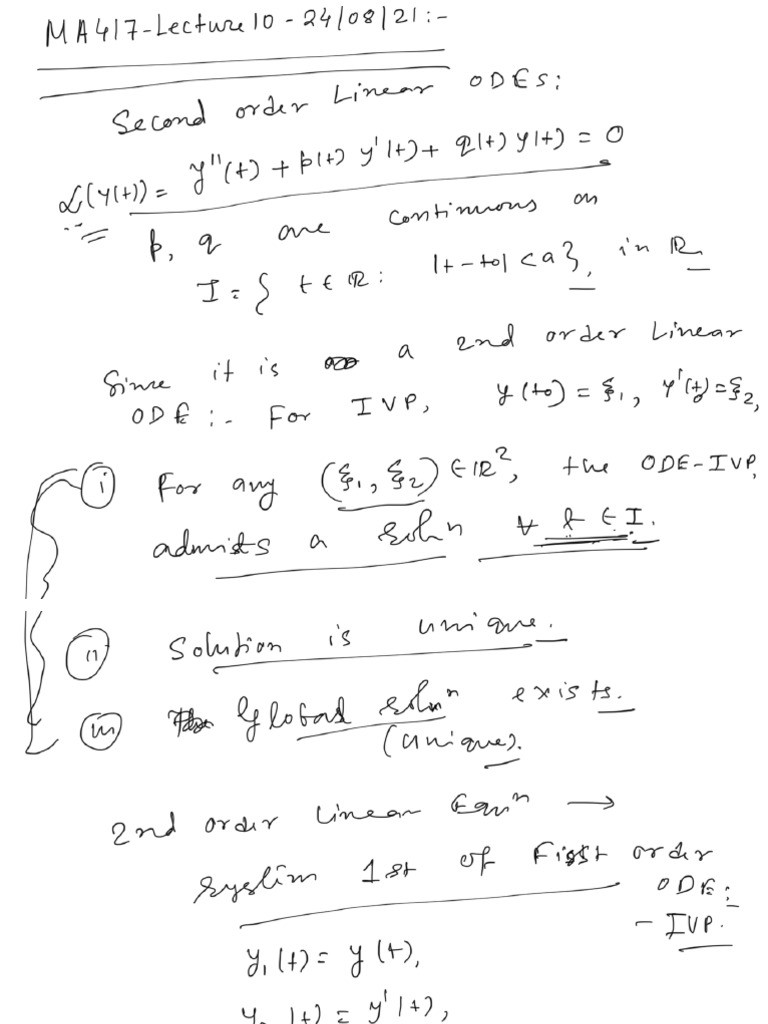 MA417-Lecture 10 - 24/08/21:-
Second order Linear ODEs:
L(y(t)) = y''(t) + p(t) y'(t) + q(t) y(t) = 0
p, q are continuous on
I = { t ∈ ℝ : |t-t0| < a }, in ℝ
Since it is a 2nd order Linear
ODE :- For IVP, y(t0) = ξ1, y'(t0) = ξ2,
(i) For any (ξ1, ξ2) ∈ ℝ², the ODE-IVP,
admits a solⁿ ∀ t ∈ I.
(ii) Solution is unique.
(iii) Global solⁿ exists.
(unique).
2nd order Linear Equⁿ →
system 1st of First order
ODE:
- IVP.
y1(t) = y(t),
y2(t) = y'(t),